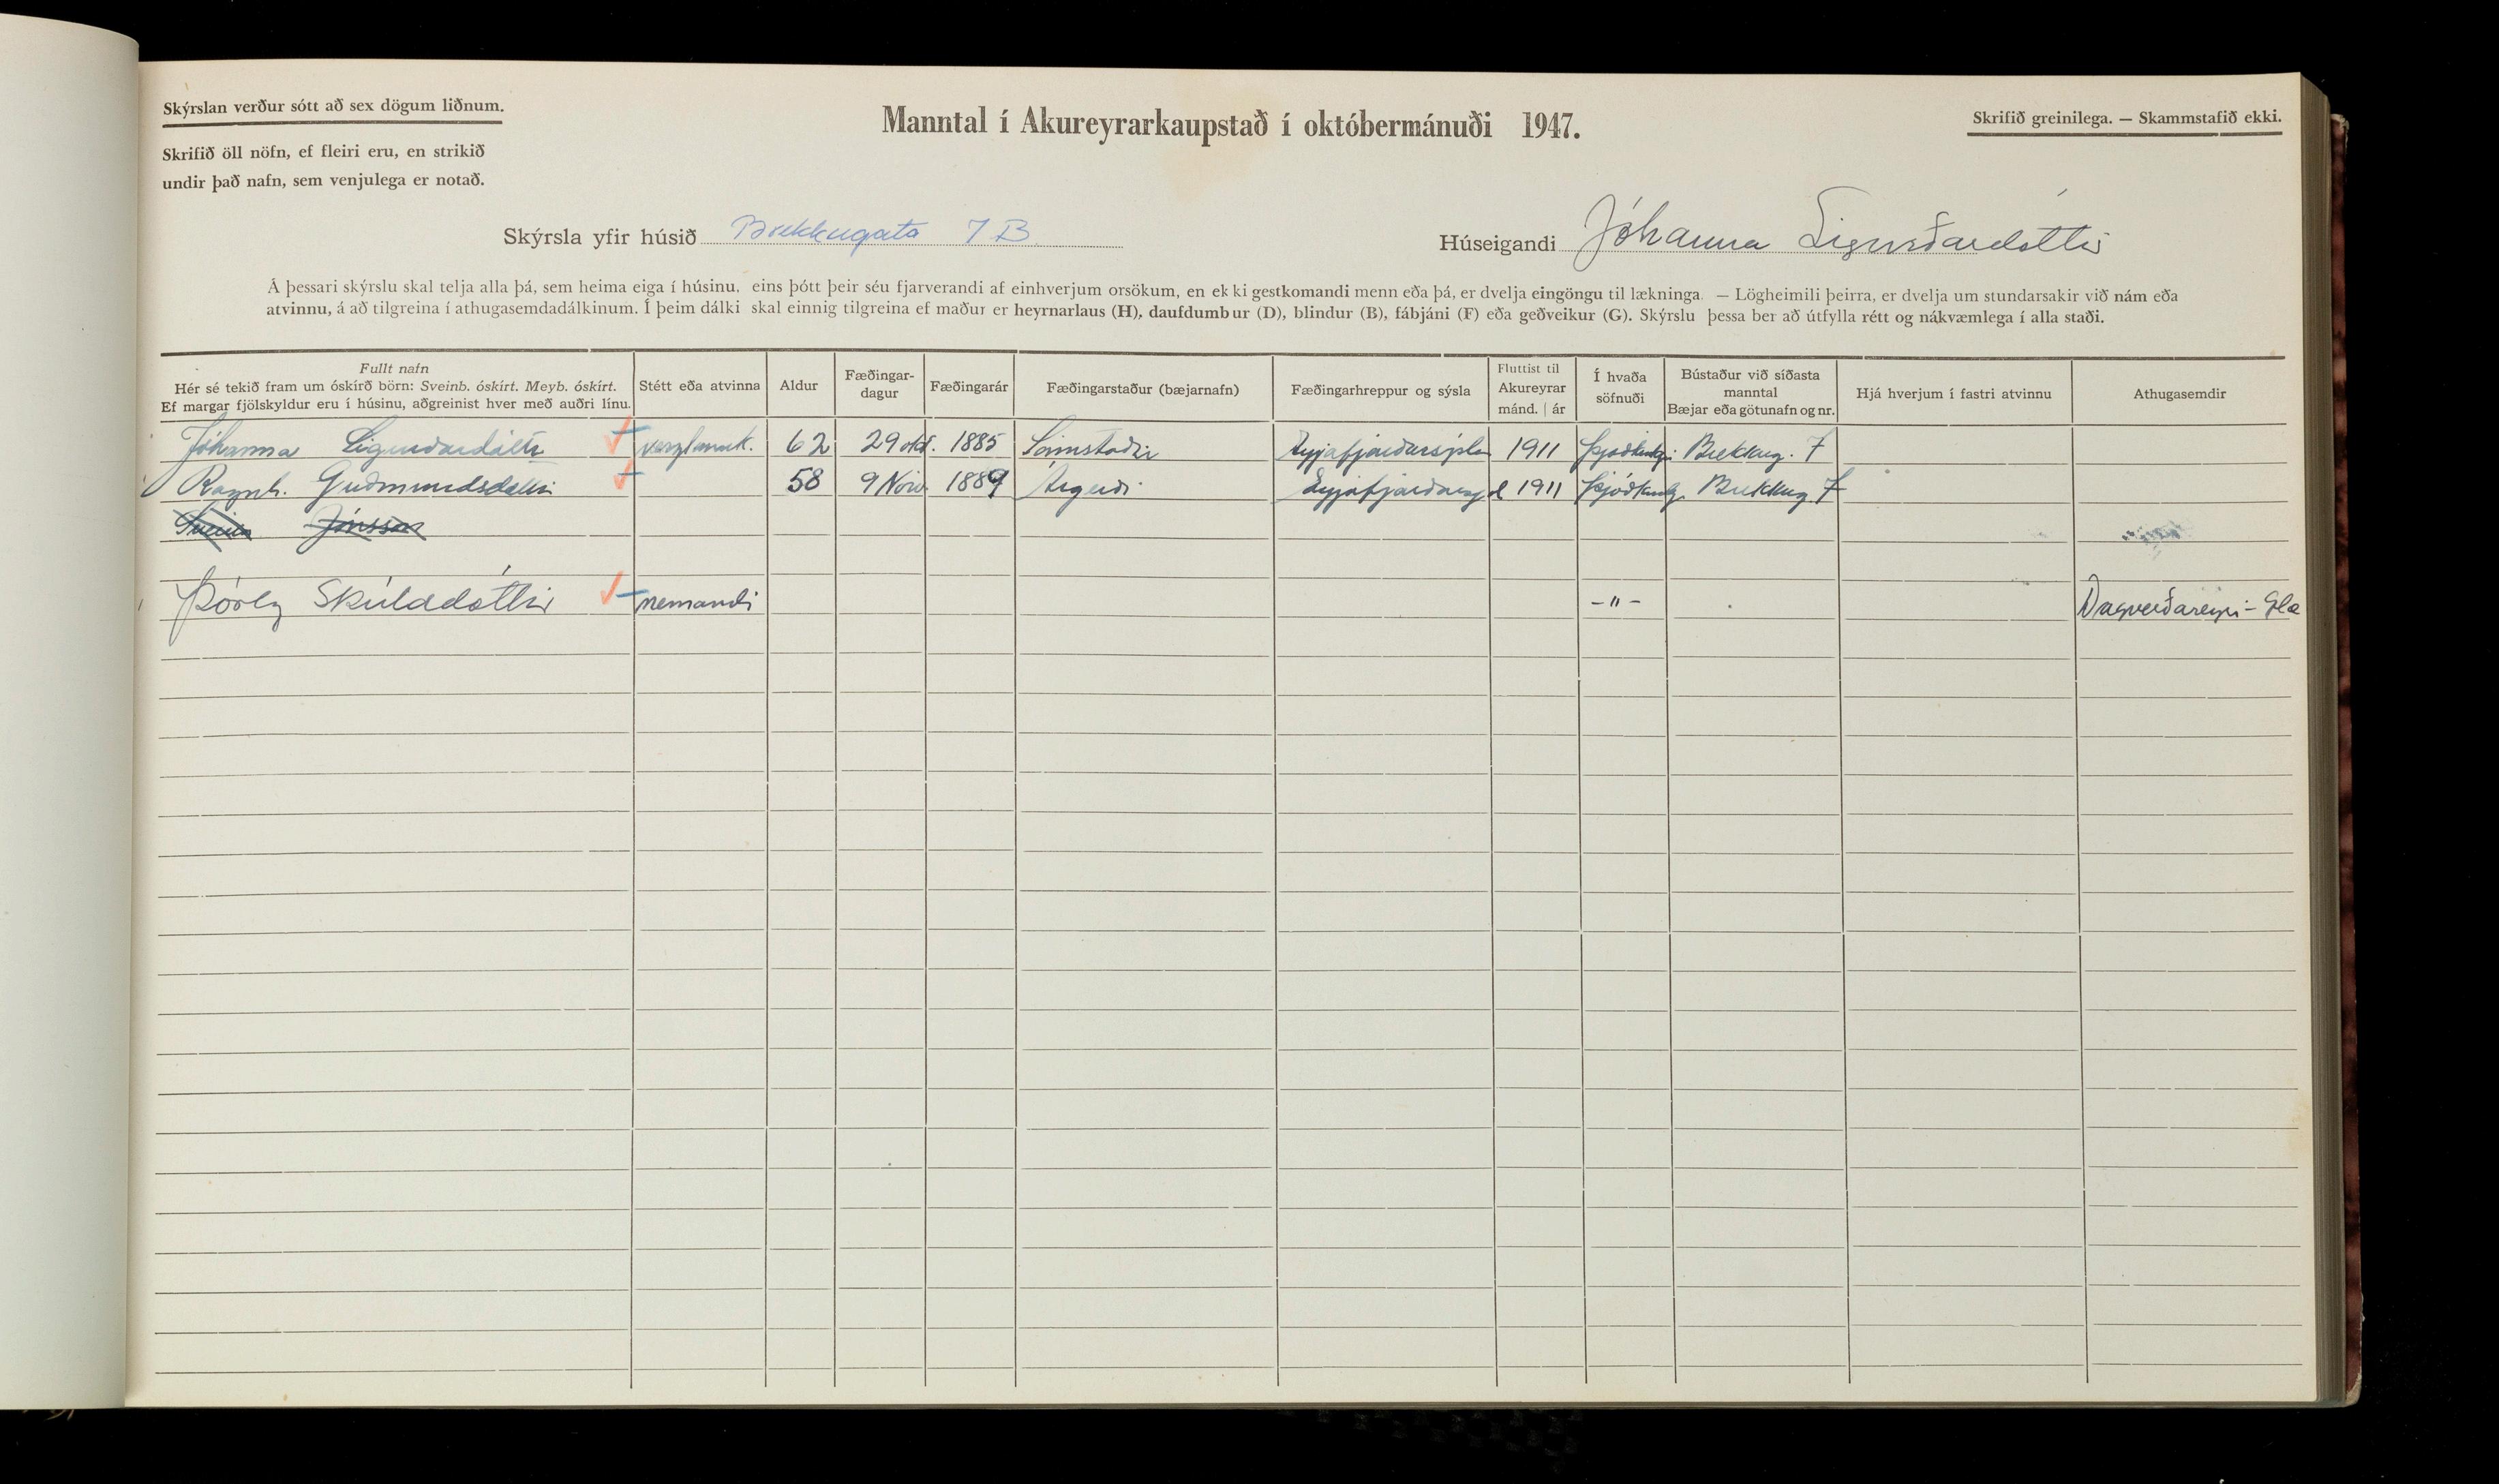 Skýrslan verður sótt að sex dögum liðnum.
Skrifið öll nöfn, ef fleiri eru, en strikið
undir það nafn, sem venjulega er notað.
Manntal í Akureyrarkaupstað í októbermánuði 1947.
Skrifið greinilega. — Skammstafið ekki.
Skýrsla yfir húsið Brekkugata 7 B
Húseigandi Jóhanna Sigurðardóttir
Á þessari skýrslu skal telja alla þá, sem heima eiga í húsinu, eins þótt þeir séu fjarverandi af einhverjum orsökum, en ekki gestkomandi menn eða þá, er dvelja eingöngu til lækninga. — Lögheimili þeirra, er dvelja um stundarsakir við nám eða
atvinnu, á að tilgreina í athugasemdadálkinum. Í þeim dálki skal einnig tilgreina ef maður er heyrnarlaus (H), daufdumbur (D), blindur (B), fábjáni (F) eða geðveikur (G). Skýrslu þessa ber að útfylla rétt og nákvæmlega í alla staði.
Fullt nafn
Hér sé tekið fram um óskírð börn: Sveinb. óskírt. Meyb. óskírt.
Ef margar fjölskyldur eru í húsinu, aðgreinist hver með auðri línu.
Stétt eða atvinna
Aldur
Fæðingar-
dagur
Fæðingarár
Fæðingarstaður (bæjarnafn)
Fæðingarhreppur og sýsla
Fluttist til
Akureyrar
mánd. | ár
Í hvaða
söfnuði
Bústaður við síðasta
manntal
Bæjar eða götunafn og nr.
Hjá hverjum í fastri atvinnu
Athugasemdir
Jóhanna Sigurðardóttir 62 29 okt. 1885 Sámstaðir Eyjafjarðarsýsla 1911 Brekkug. 7
Ragnh. Guðmundsdóttir 58 9 Nóv 1889 Árgerði Eyjafjarðarsýsl 1911 Brekkug 7
Sveinn Jónsson
Þórey Skúladóttir nemandi -"- Dagverðareyri - Glæ